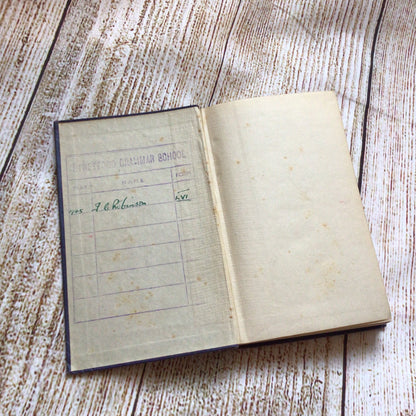 STRETFORD GRAMMAR SCHOOL
DATE NAME FORM
1945 F. C. Robinson LVI